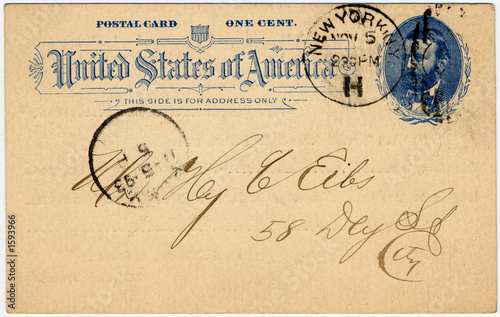 POSTAL CARD ONE CENT.
United States of America
THIS SIDE IS FOR ADDRESS ONLY
NEW YORK N.Y.
NOV 5
230PM
H
11-5-93
5
Mr Hy C Eibs
58 Dey St
City
Adobe Stock | #1593966